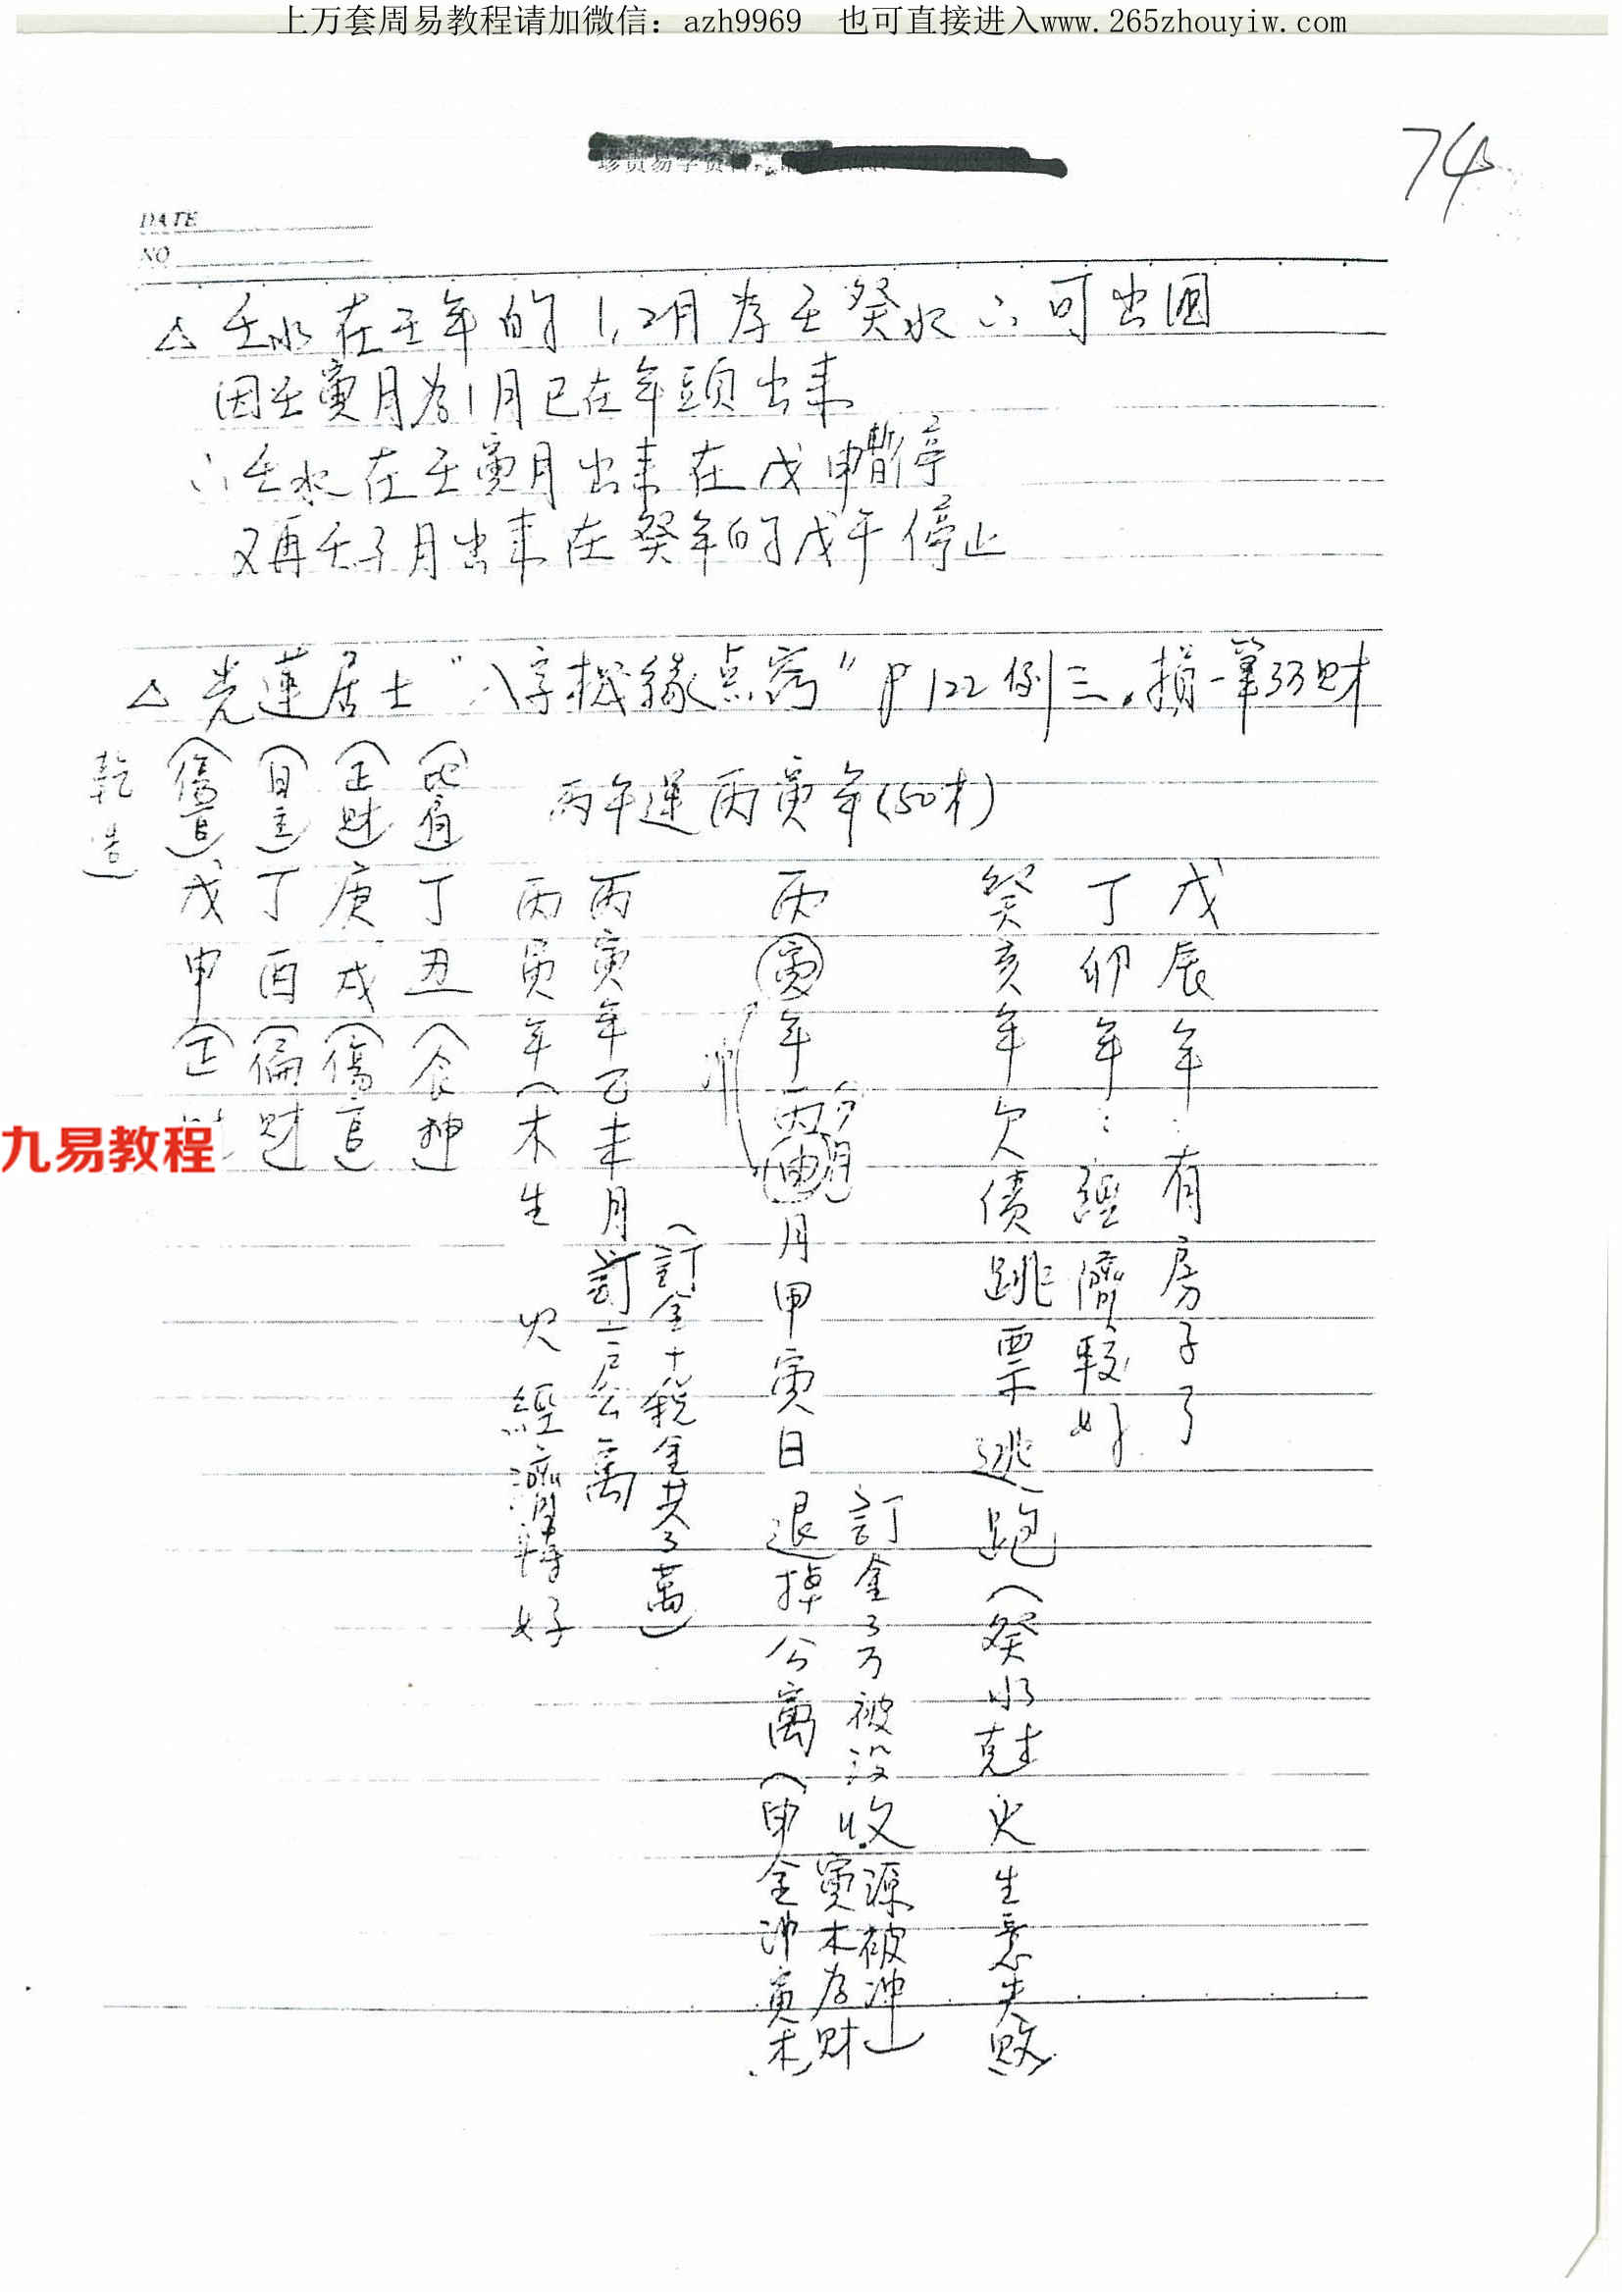 上万套周易教程请加微信：azh9969 也可直接进入www.265zhouyiw.com
74
DATE
NO
△ 壬水在壬年的1,2月為壬癸水 ∴可出国
因壬寅月為1月已在年頭出来
∴壬水在壬寅月出来在戊申暫停
又再壬子月出来在癸年的戊午停止
△ 光蓮居士"八字機緣点窍" P122例三.損一筆3万財
乾造
(比肩)丁丑(食神)
(正財)庚戌(傷官)
(日主)丁酉(偏財)
(傷官)戊申(正
丙午運丙寅年(50才)
戊辰年:有房子了
丁卯年:經濟較好
癸亥年欠債跳票逃跑(癸水尅火生意失敗)
丙寅年丙申月甲寅日退掉公寓(申金沖寅木)
訂金3万被沒收
寅木為財
源被沖
冲
丙寅年乙未月訂一戶公寓
(訂金+稅金共3萬)
丙寅年(木生火經濟轉好
九易教程